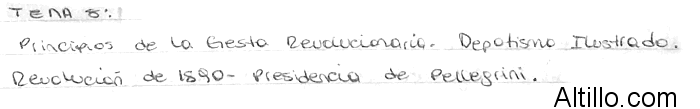 TEMA 8:
Principios de la Gesta Revolucionaria. Depotismo Ilustrado.
Revolución de 1890- Presidencia de Pellegrini.
Altillo.com